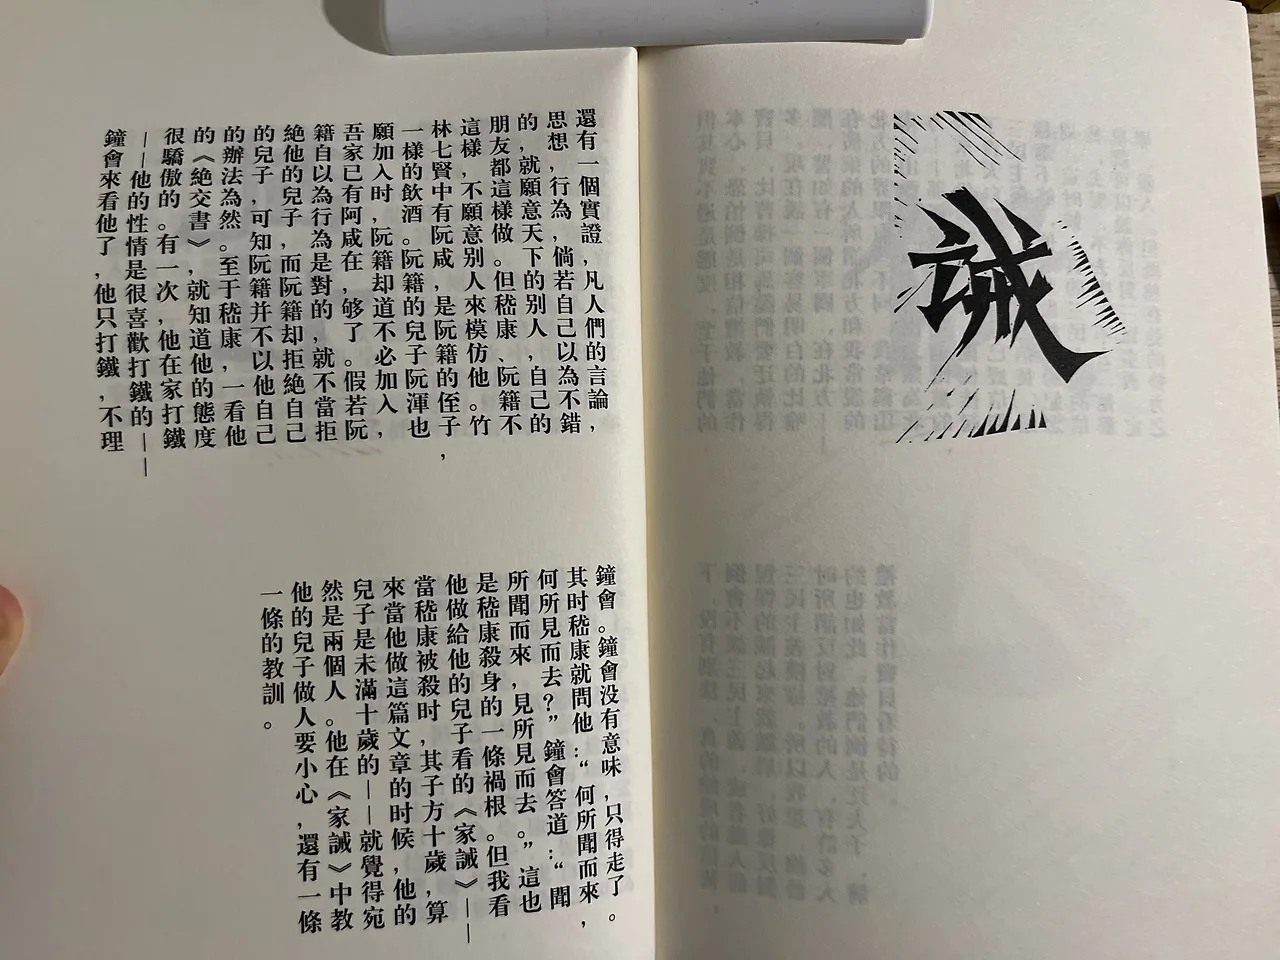 誡
還有一個實證，凡人們的言論，
思想，行為，倘若自己以為不錯
的，就願意天下的别人，自己的
朋友，都這樣做。但嵇康、阮籍不
這樣，不願意别人來模仿他。竹
林七賢中有阮咸，是阮籍的侄子，
一樣的飲酒。阮籍的兒子阮渾也
願加入时，阮籍却道不必加入，
吾家已有阿咸在，够了。假若阮
籍自以為行為是對的，就不當拒
絶他的兒子，而阮籍却拒絶自己
的兒子，可知阮籍并不以他自己
的辦法為然。至于嵇康，一看他
的《絶交書》，就知道他的態度
很驕傲的。有一次，他在家打鐵
——他的性情是很喜歡打鐵的——
鐘會來看他了，他只打鐵，不理
鐘會。鐘會没有意味，只得走了。
其时嵇康就問他：“何所聞而來，
何所見而去？”鐘會答道：“聞
所聞而來，見所見而去。”這也
是嵇康殺身的一條禍根。但我看
他做給他的兒子看的《家誡》——
當嵇康被殺时，其子方十歲，算
來當他做這篇文章的时候，他的
兒子是未滿十歲的——就覺得宛
然是兩個人。他在《家誡》中教
他的兒子做人要小心，還有一條
一條的教訓。